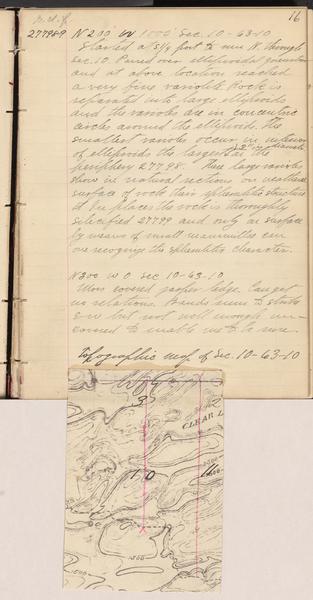 16
277989 N 200 W 1000 Sec. 10-63-10
Started at S 1/4 post to run N. through
Sec. 10 Passed over ellipsoidal greenstone
and at above location reached
a very fine variolite Rock is
separated into large ellipsoids
and the varioles are in concentric
circles around the ellipsoid. The
smallest varioles occur in interior
of ellipsoids the largest at the
periphery 27798. These large varioles
show in natural section on weathered
surface of rock their spherulitic structure
In places the rock is thoroughly
silicified 27799 and only on surface
by means of small mammilla can
one recognize the spherulitic character.
N 300 W 0 Sec 10-63-10
Moss covered jasper ledge. Can get
no relations. Bands seem to strike
E-W but not well enough un-
covered to enable me to be sure.
Topographic map of Sec. 10-63-10
3
2
CLEAR L
10
11
1500
1500